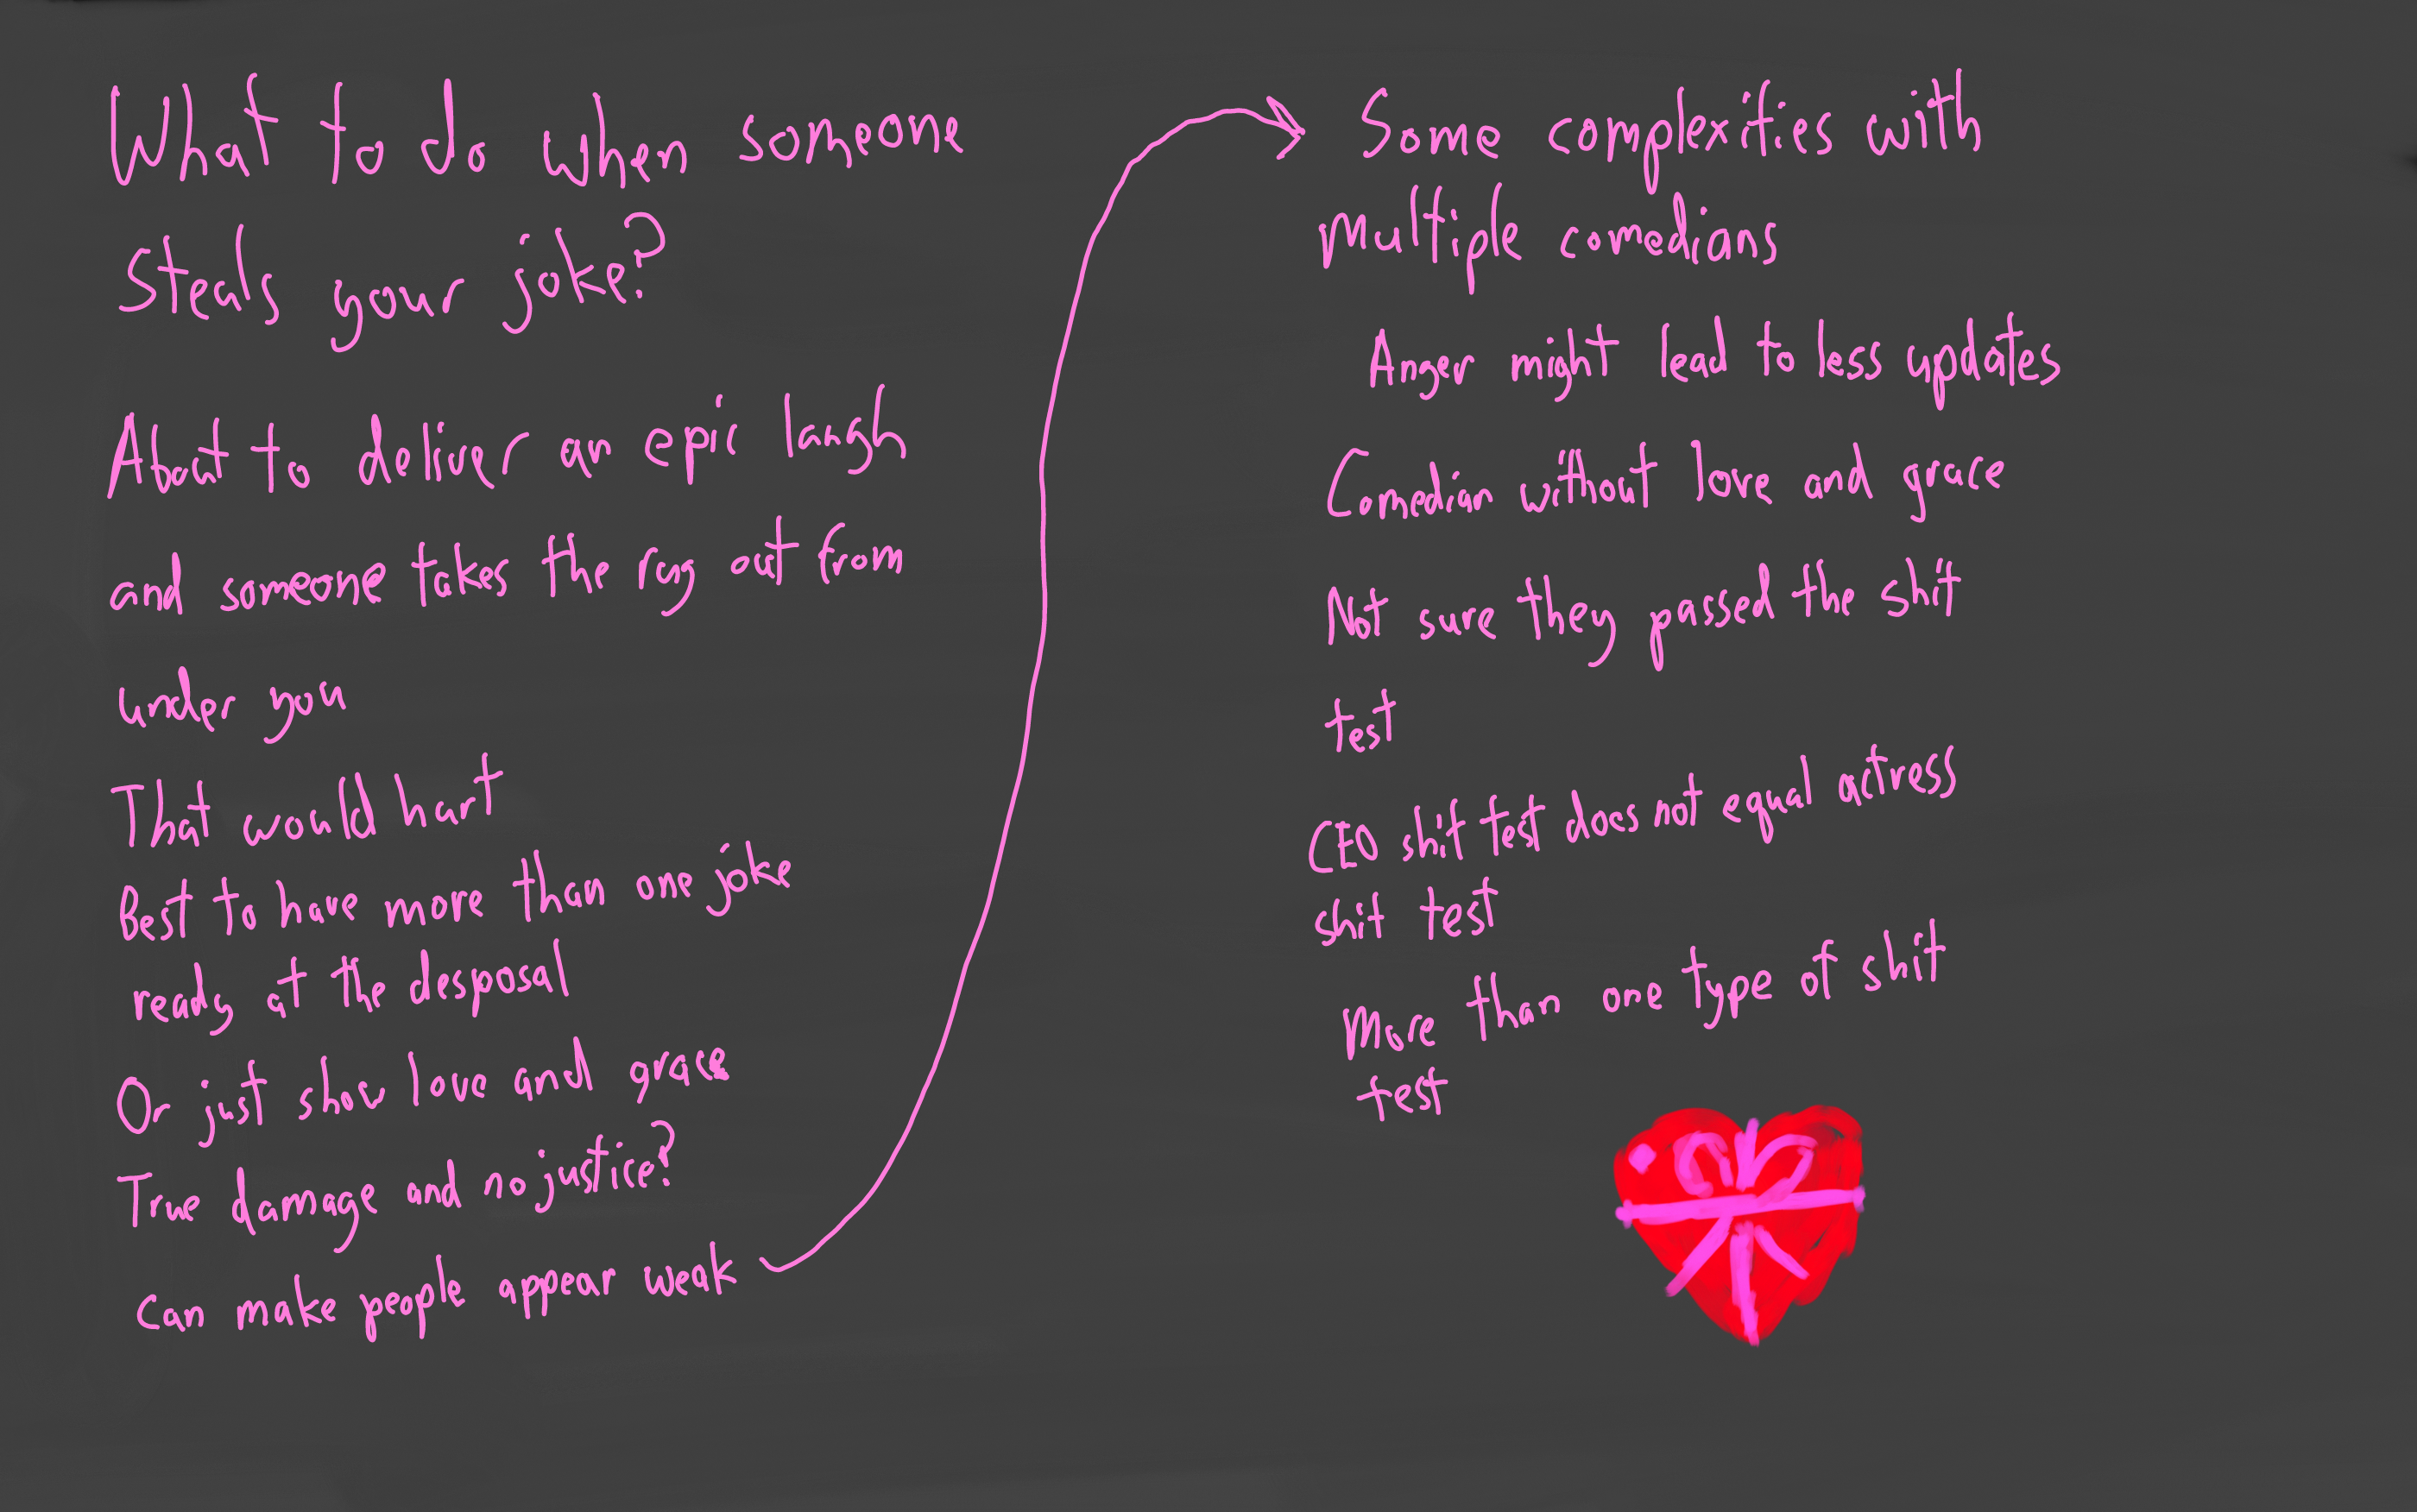 What to do when someone
Steals your joke?
About to deliver an epic laugh
and someone takes the rug out from
under you
That would hurt
Best to have more than one joke
ready at the desposal
Or just show love and grace
True damage and no justice?
Can make people appear weak
Some complexities with
Multiple comedians
Anger might lead to less updates
Comedian without love and grace
Not sure they passed the shit
test
CEO shit test does not equal actress
shit test
More than one type of shit
test